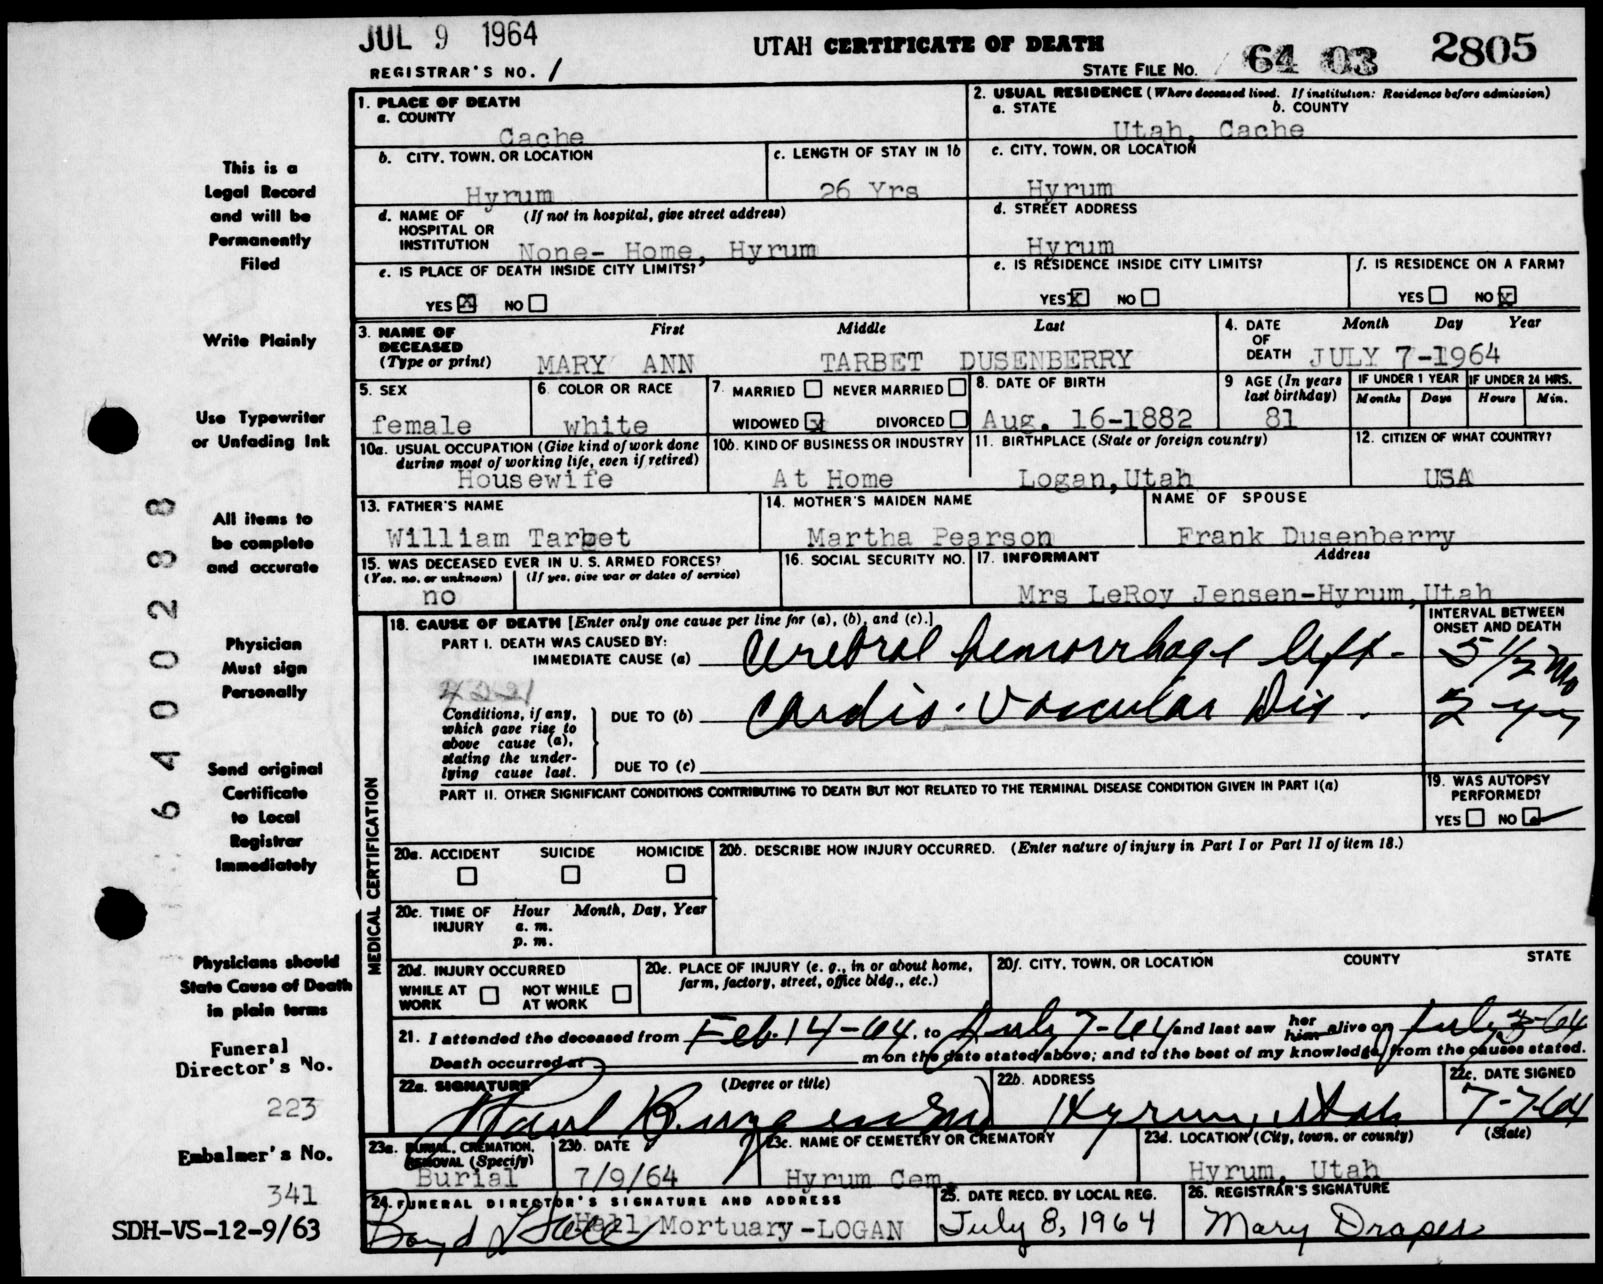 JUL 9 1964
UTAH CERTIFICATE OF DEATH
REGISTRAR'S NO. 1
STATE FILE NO. 64 03 2805
1. PLACE OF DEATH
a. COUNTY
Cache
2. USUAL RESIDENCE (Where deceased lived. If institution: Residence before admission)
a. STATE b. COUNTY
Utah, Cache
b. CITY, TOWN, OR LOCATION
Hyrum
c. LENGTH OF STAY IN 1b
26 Yrs
c. CITY, TOWN, OR LOCATION
Hyrum
d. NAME OF HOSPITAL OR INSTITUTION (If not in hospital, give street address)
None- Home, Hyrum
d. STREET ADDRESS
Hyrum
e. IS PLACE OF DEATH INSIDE CITY LIMITS?
YES X NO
e. IS RESIDENCE INSIDE CITY LIMITS?
YES X NO
f. IS RESIDENCE ON A FARM?
YES NO X
3. NAME OF DECEASED (Type or print)
First Middle Last
MARY ANN TARBET DUSENBERRY
4. DATE OF DEATH Month Day Year
JULY 7-1964
5. SEX
female
6. COLOR OR RACE
white
7. MARRIED NEVER MARRIED
WIDOWED X DIVORCED
8. DATE OF BIRTH
Aug. 16-1882
9 AGE (In years last birthday)
81
IF UNDER 1 YEAR IF UNDER 24 HRS.
Months Days Hours Min.
10a. USUAL OCCUPATION (Give kind of work done
during most of working life, even if retired)
Housewife
10b. KIND OF BUSINESS OR INDUSTRY
At Home
11. BIRTHPLACE (State or foreign country)
Logan, Utah
12. CITIZEN OF WHAT COUNTRY?
USA
13. FATHER'S NAME
William Tarbet
14. MOTHER'S MAIDEN NAME
Martha Pearson
NAME OF SPOUSE
Frank Dusenberry
15. WAS DECEASED EVER IN U. S. ARMED FORCES?
(Yes, no, or unknown) (If yes, give war or dates of service)
no
16. SOCIAL SECURITY NO.
17. INFORMANT Address
Mrs LeRoy Jensen-Hyrum, Utah
MEDICAL CERTIFICATION
18. CAUSE OF DEATH [Enter only one cause per line for (a), (b), and (c).]
INTERVAL BETWEEN
ONSET AND DEATH
PART I. DEATH WAS CAUSED BY:
IMMEDIATE CAUSE (a) Cerebral hemorrhage left - 5 1/2 Mo
Conditions, if any,
which gave rise to
above cause (a),
stating the under-
lying cause last.
DUE TO (b) Cardio-Vascular Dis.
DUE TO (c)
PART II. OTHER SIGNIFICANT CONDITIONS CONTRIBUTING TO DEATH BUT NOT RELATED TO THE TERMINAL DISEASE CONDITION GIVEN IN PART I(a)
19. WAS AUTOPSY
PERFORMED?
YES NO
20a. ACCIDENT SUICIDE HOMICIDE
20b. DESCRIBE HOW INJURY OCCURRED. (Enter nature of injury in Part I or Part II of item 18.)
20c. TIME OF INJURY Hour Month, Day, Year
a. m.
p. m.
20d. INJURY OCCURRED
WHILE AT WORK NOT WHILE AT WORK
20e. PLACE OF INJURY (e. g., in or about home,
farm, factory, street, office bldg., etc.)
20f. CITY, TOWN, OR LOCATION COUNTY STATE
21. I attended the deceased from Feb. 14-64, to July 7-64 and last saw her him alive on July 3-64
Death occurred at m on the date stated above; and to the best of my knowledge, from the causes stated.
22a. SIGNATURE (Degree or title)
22b. ADDRESS
Hyrum, Utah
22c. DATE SIGNED
7-7-64
23a. BURIAL, CREMATION,
REMOVAL (Specify)
Burial
23b. DATE
7/9/64
23c. NAME OF CEMETERY OR CREMATORY
Hyrum Cem
23d. LOCATION (City, town, or county) (State)
Hyrum, Utah
24. FUNERAL DIRECTOR'S SIGNATURE AND ADDRESS
Boyd L Hall Hall Mortuary-LOGAN
25. DATE RECD. BY LOCAL REG.
July 8, 1964
26. REGISTRAR'S SIGNATURE
Mary Draper
This is a
Legal Record
and will be
Permanently
Filed
Write Plainly
Use Typewriter
or Unfading Ink
All items to
be complete
and accurate
Physician
Must sign
Personally
Send original
Certificate
to Local
Registrar
Immediately
Physicians should
State Cause of Death
in plain terms
Funeral
Director's No.
223
Embalmer's No.
341
SDH-VS-12-9/63
6400288